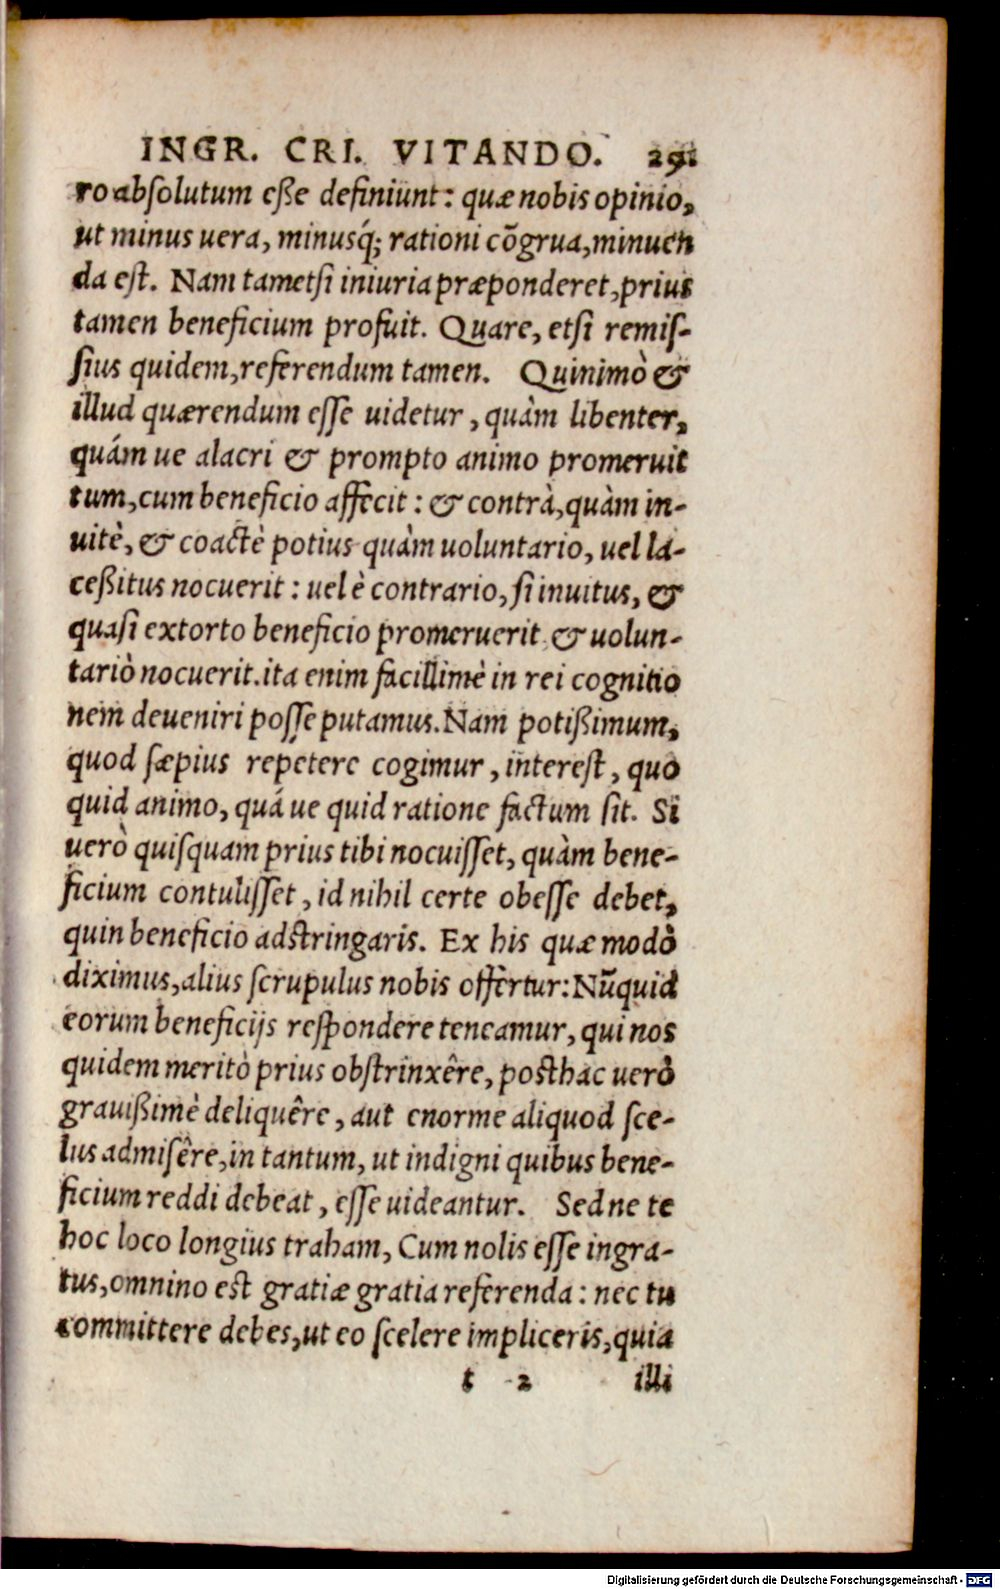 INGR. CRI. VITANDO. 291
ro absolutum eße definiunt: quæ nobis opinio,
ut minus uera, minusq́; rationi cõgrua, minuen
da est. Nam tametsi iniuria præponderet, prius
tamen beneficium profuit. Quare, etsi remiſ-
ſius quidem, referendum tamen. Quinimò &
illud quærendum eſſe uidetur, quàm libenter,
quám ue alacri & prompto animo promeruit
tum, cum beneficio affecit: & contrà, quàm in-
uitè, & coactè potius quàm uoluntario, uel la-
ceßitus nocuerit: uel è contrario, ſi inuitus, &
quaſi extorto beneficio promeruerit & uolun-
tariò nocuerit. ita enim facillimè in rei cognitio
nem deueniri poſſe putamus. Nam potißimum,
quod ſæpius repetere cogimur, intereſt, quo
quid animo, quá ue quid ratione factum ſit. Si
uerò quiſquam prius tibi nocuiſſet, quàm bene-
ficium contuliſſet, id nihil certe obeſſe debet,
quin beneficio adſtringaris. Ex his quæ modò
diximus, alius ſcrupulus nobis offertur: Nũquid
eorum beneficijs reſpondere teneamur, qui nos
quidem meritò prius obſtrinxêre, poſthac uerò
grauißimè deliquêre, aut enorme aliquod ſce-
lus admiſêre, in tantum, ut indigni quibus bene-
ficium reddi debeat, eſſe uideantur. Sed ne te
hoc loco longius traham, Cum nolis eſſe ingra-
tus, omnino est gratiæ gratia referenda: nec tu
committere debes, ut eo ſcelere impliceris, quia
t 2 illi
Digitalisierung gefördert durch die Deutsche Forschungsgemeinschaft - DFG